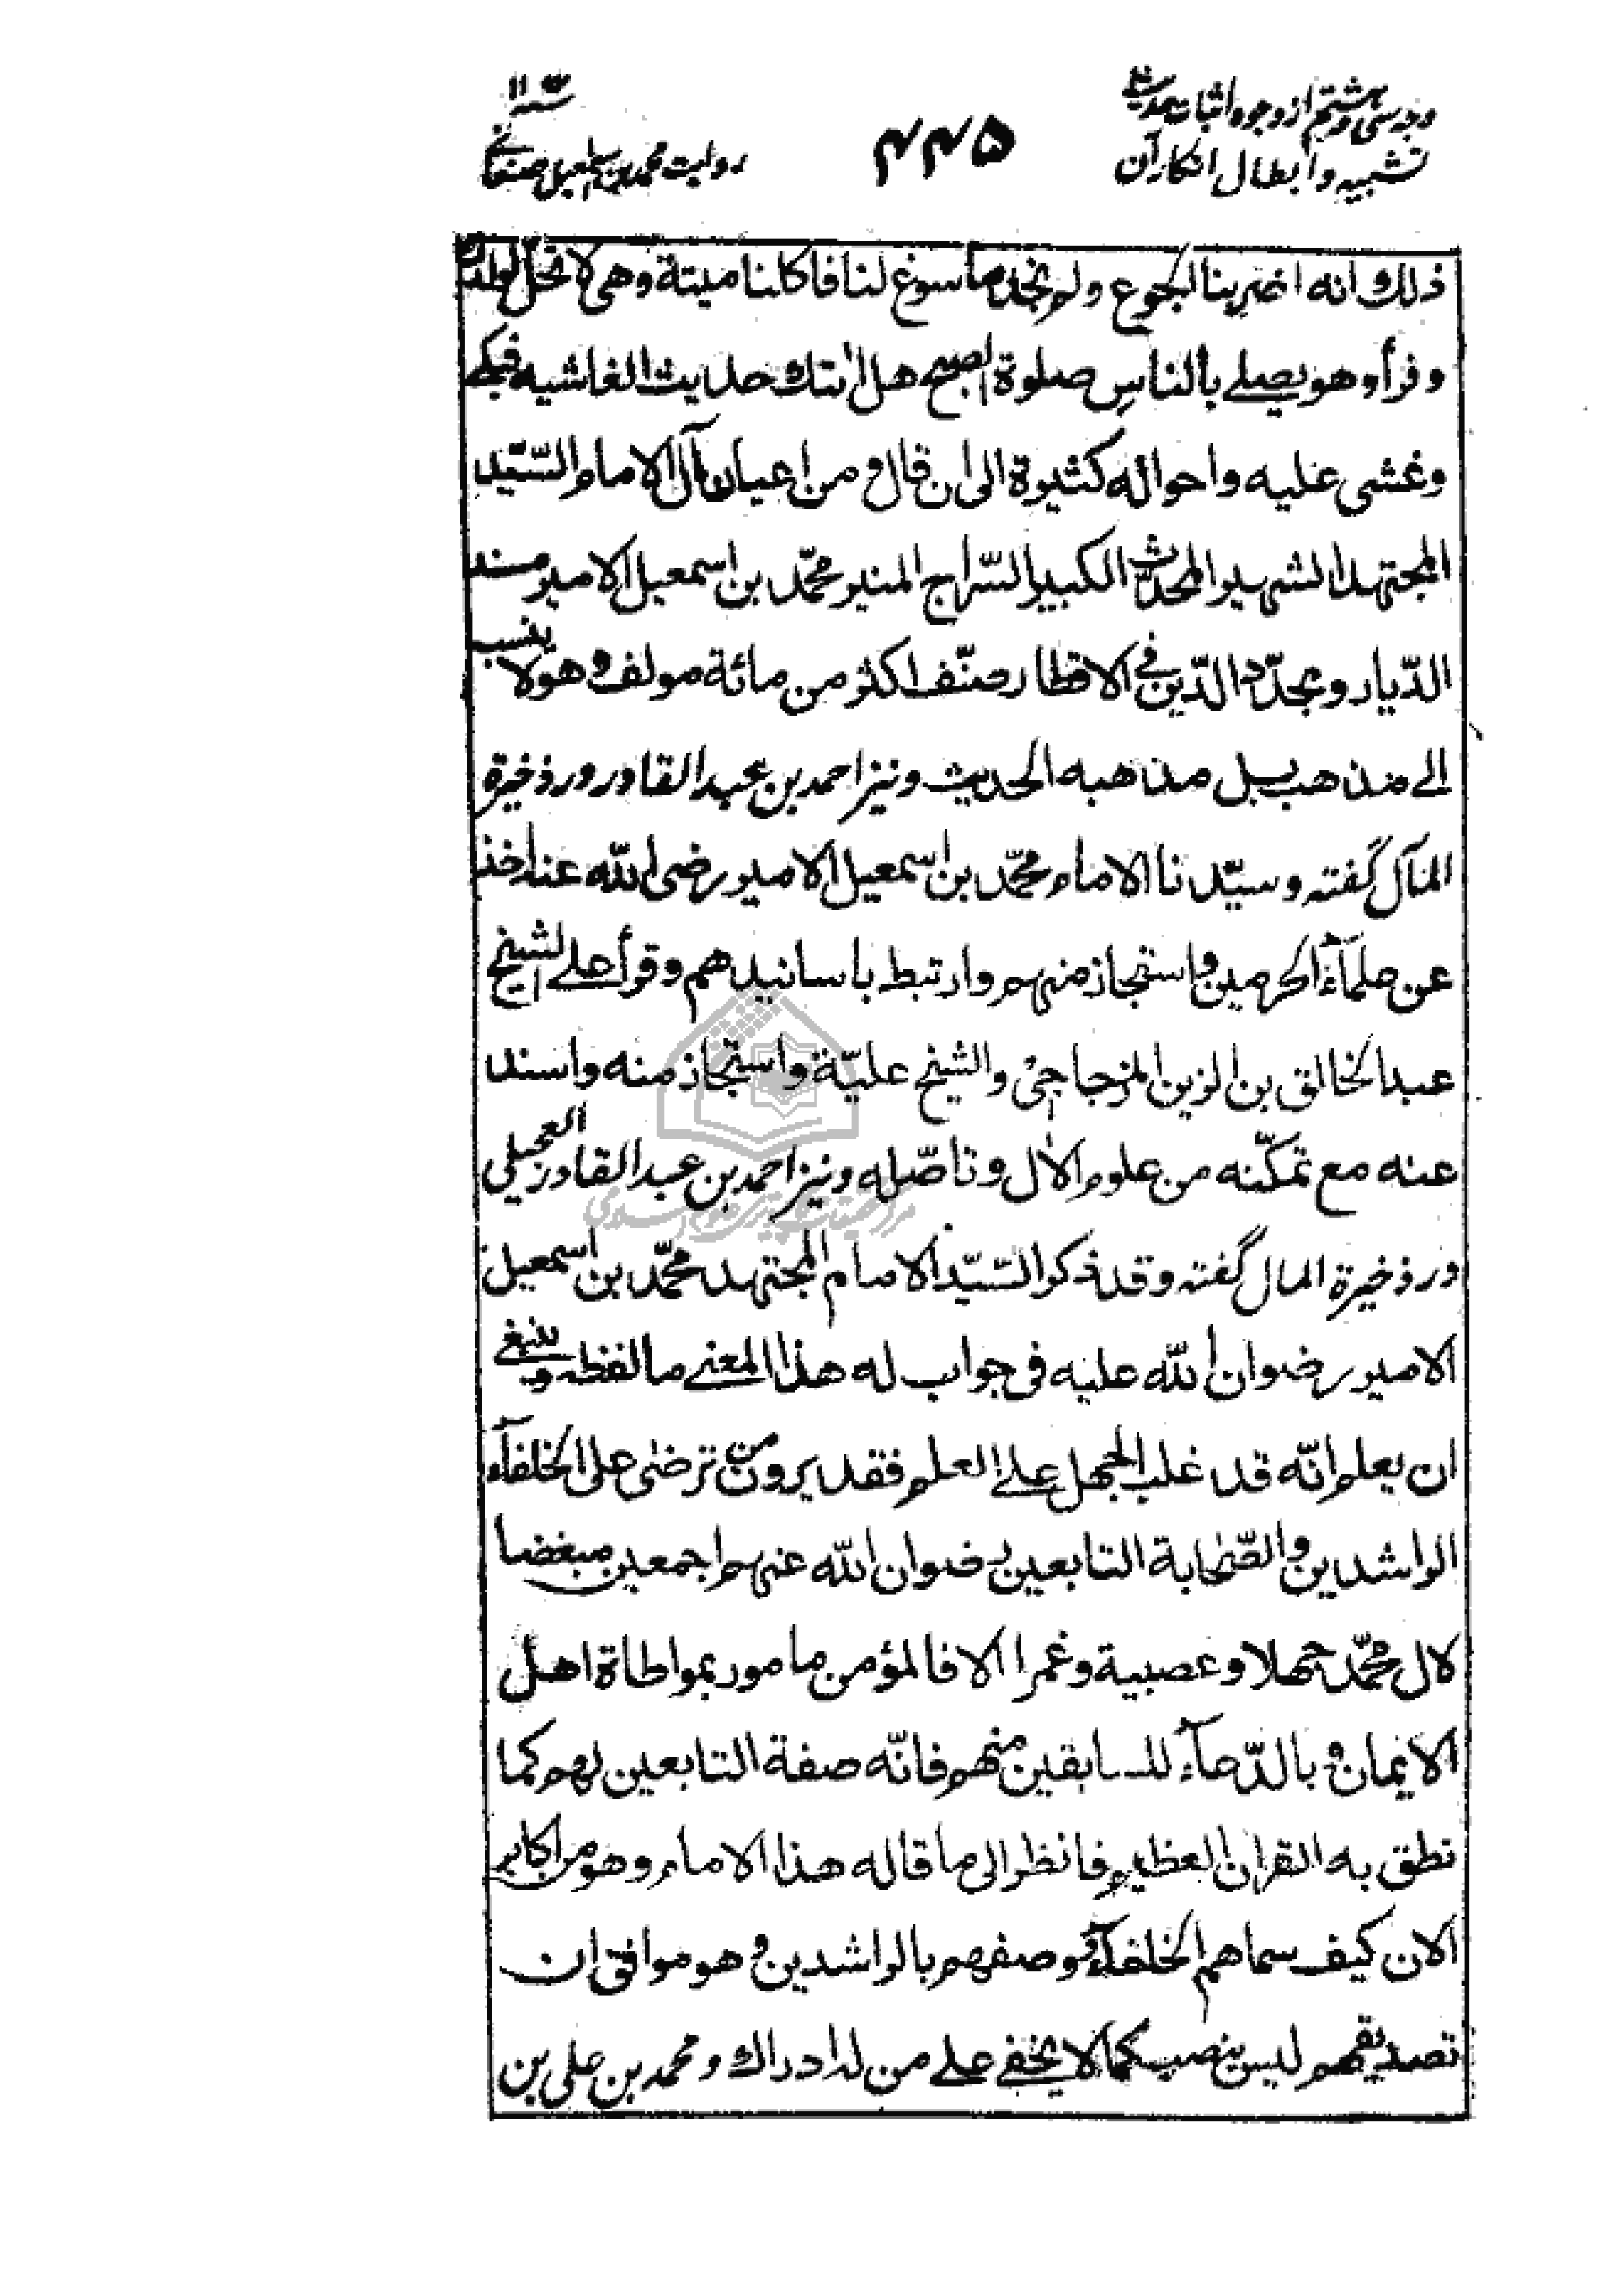 وجه سی و هشتم از وجوه اثبات حدیث
تشبیه و ابطال انکار آن
۴۴۵
روایت محمد بن اسمعیل صنعانی
ذلك انه اضر بنا الجوع ولم نجد ما سوغ لنا فاكلنا ميتة وهى لا تحل
وقرأ وهو يصلے بالناس صلوة الصبح هل اتتك حديث الغاشيه فبكے
وغشى عليه واحواله كثيرة الى ان قال ومن اعيان آل الامام السّيّد
المجتهد الشهير المحدّث الكبير السّراج المنير محمّد بن اسمعيل الامير مسند
الدّيار ومجدّد الدّين فے الاقطار صنّف اكثر من مائة مولف وهو لا ينسب
الے مذهب بل مذهبه الحديث ونیز احمد بن عبد القادر در ذخیرة
المآل گفته وسيّدنا الامام محمّد بن اسمعيل الامير رضى اللّه عنه اخذ
عن علمآء الحرمين واستجاز منهم وارتبط باسانيدهم وقرأ علے الشيخ
عبد الخالق بن الزين المزجاجى والشيخ عليّة واستجاز منه واسند
عنه مع تمكّنه من علوم الآل وتاصّله ونیز احمد بن عبد القادر العجيلي
در ذخیرة المال گفته وقد ذكر السّيّد الامام المجتهد محمّد بن اسمعيل
الامير رضوان اللّه عليه فى جواب له هذا المعنے ما لفظه وينبغے
ان يعلم انّه قد غلب الجهل علے العلم فقد يرون من ترضى على الخلفآء
الراشدين والصّحابة التابعين رضوان اللّه عنهم اجمعين مبغضا
لال محمّد جهلا وعصبية وغمرا الا فالمؤمن مامور بمواطاة اهل
الايمان وبالدّعآء للسابقين منهم فانّه صفة التابعين لهم كما
نطق به القران العظيم فانظر الى ما قاله هذا الامام وهو من اكابر
الان كيف سماهم الخلفآء ووصفهم بالراشدين وهو موافق ان
تصديقهم ليس بنصب كما لا يخفے علے من له ادراك ومحمد بن على بن